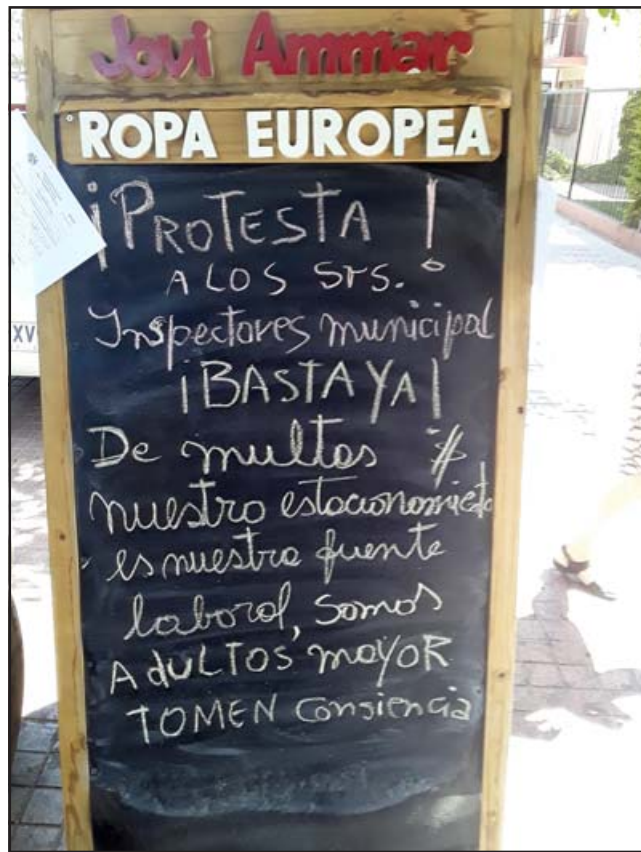 Jovi Ammar
ROPA EUROPEA
¡PROTESTA!
A LOS Srs.
Inspectores municipal
¡BASTA YA!
De multas
nuestro estacionamiento
es nuestra fuente
laboral, somos
AdULTOS mayoR
TOMEN Consiencia
XV